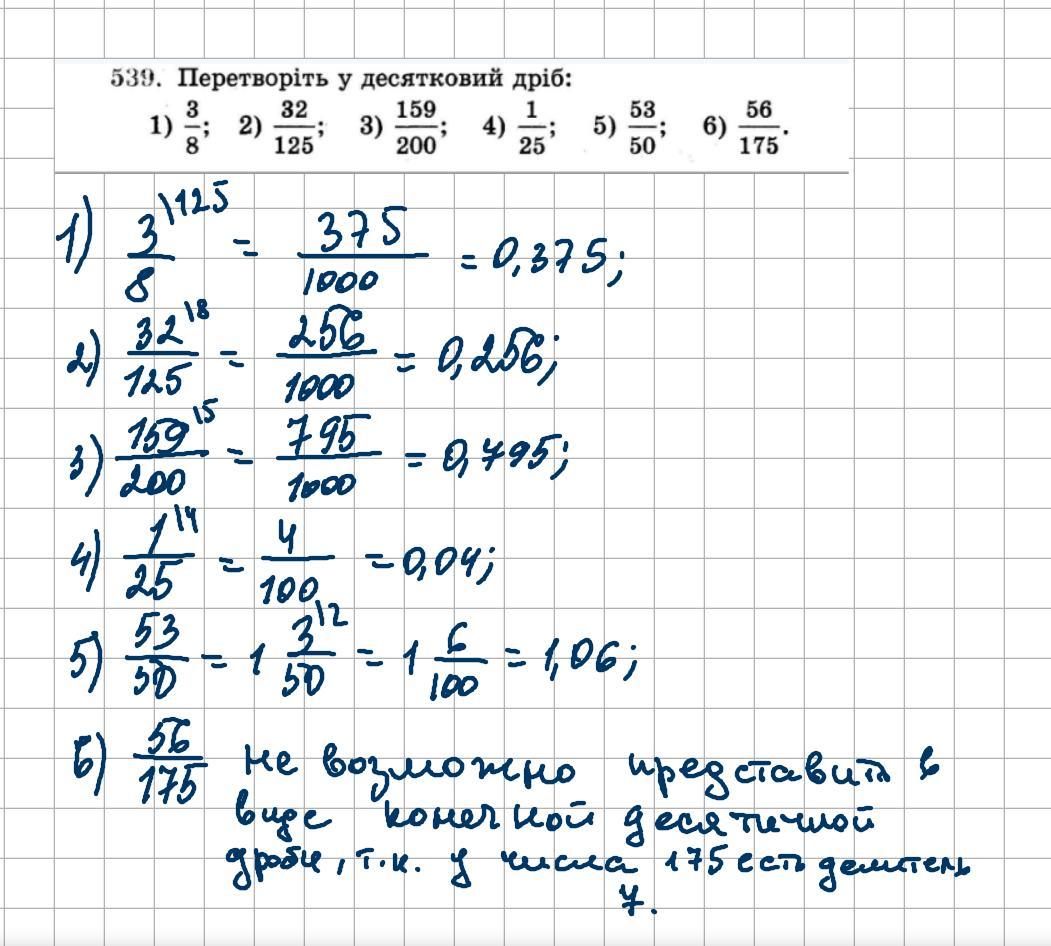 539. Перетворіть у десятковий дріб:
1) 3/8; 2) 32/125; 3) 159/200; 4) 1/25; 5) 53/50; 6) 56/175.
1) 3\125/8 = 375/1000 = 0,375;
2) 32\8/125 = 256/1000 = 0,256;
3) 159\5/200 = 795/1000 = 0,795;
4) 1\4/25 = 4/100 = 0,04;
5) 53/50 = 1 3\2/50 = 1 6/100 = 1,06;
6) 56/175 не возможно представить в
виде конечной десятичной
дроби, т.к. у числа 175 есть делитель
7.